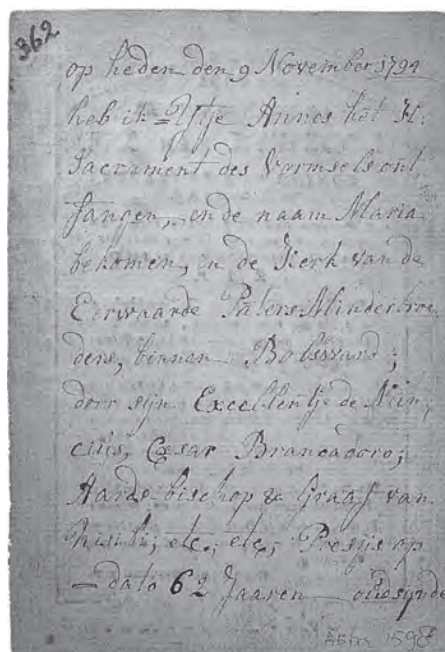 362
op heden den 9 November 1794
heb ik Ytje Annes het H:
Sacrament des Vormsels ont
fangen, en de naam Maria
bekomen, in de Kerk van de
Eerwaarde Paters Minderbroe
ders, binnen Bolsward;
door sijn Excellentje de Nun,
cius, Cæsar Brancadoro;
Aards bischop & Graaf van
Nisibi; etc; etc; Presijs op
dato 62 Jaaren oudsijnde